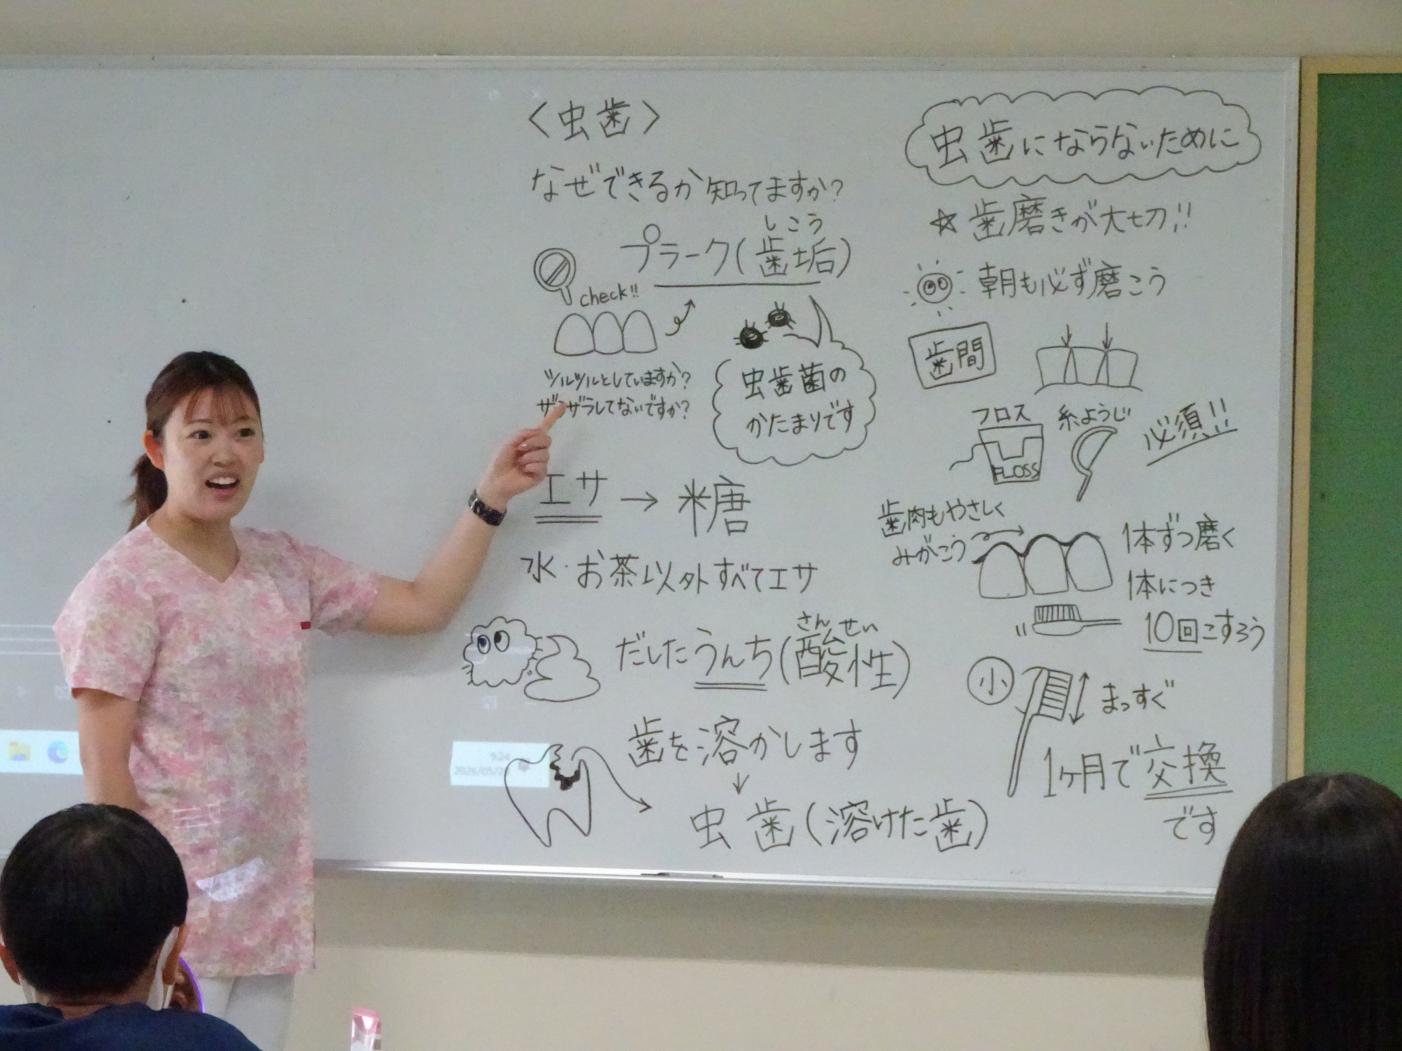 〈虫歯〉
なぜできるか知ってますか?
しこう
プラーク(歯垢)
check!!
ツルツルとしていますか?
ザラザラしてないですか?
虫歯菌の
かたまりです
エサ → 糖
水・お茶以外すべてエサ
さんせい
だしたうんち(酸性)
歯を溶かします
↓
虫歯(溶けた歯)
虫歯にならないために
☆歯磨きが大切!!
朝も必ず磨こう
歯間
フロス
FLOSS
糸ようじ
必須!!
歯肉もやさしく
みがこう
1本ずつ磨く
1本につき
10回こすろう
小
まっすぐ
1ヶ月で交換
です
9:24